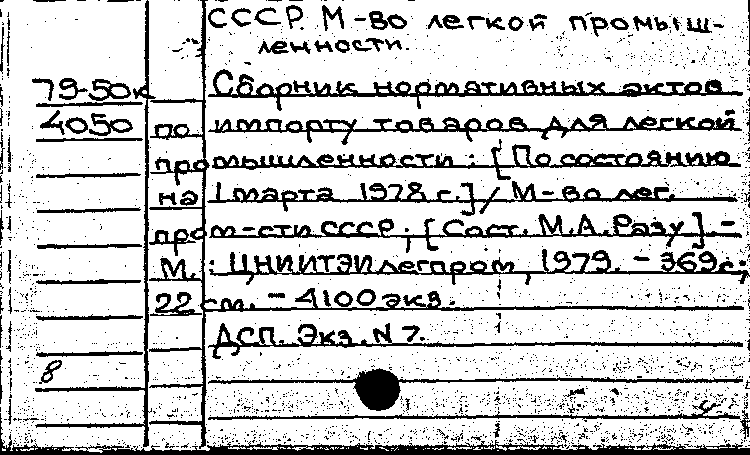 СССР. М-во легкой промыш-
ленности.
79-50к Сборник нормативных актов
4050 по импорту товаров для легкой
промышленности : [По состоянию
на 1 марта 1978 г.] / М-во лег.
пром-сти СССР ; [Сост. М.А. Разу]. -
М. : ЦНИИТЭИлегпром, 1979. - 369 с.;
22 см. - 4100 экз.
ДСП. Экз. N 7.
8